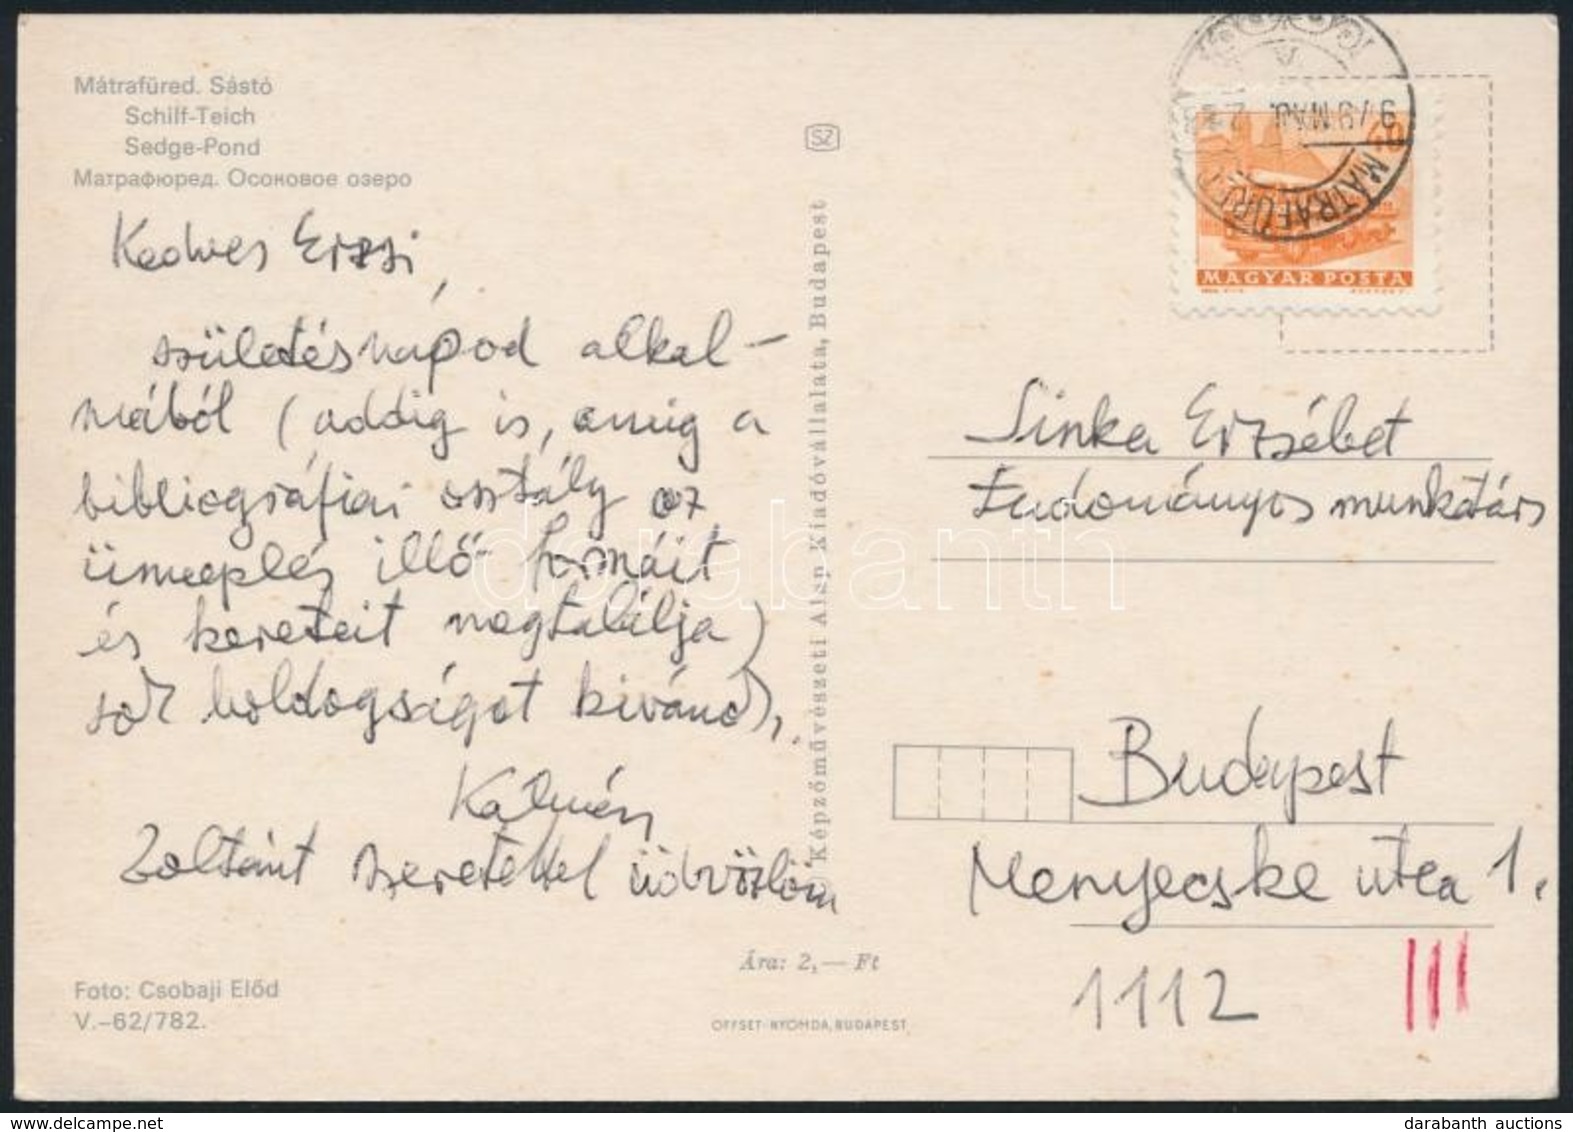 Mátrafüred. Sástó
Schilf-Teich
Sedge-Pond
Матрафюред. Осоковое озеро
Kedves Erzsi,
születésnapod alkal-
mából (addig is, amig a
bibliográfiai osztály az
ünneplés illő formáit
és kereteit megtalálja)
sok boldogságot kivánok,
Kálmán
Zoltánt szeretettel üdvözlöm
Foto: Csobaji Előd
V.-62/782.
SZ
Képzőművészeti Alap Kiadóvállalata, Budapest
Ára: 2,— Ft
OFFSET-NYOMDA, BUDAPEST
MÁTRAFÜRED
MAGYAR POSTA
Sinka Erzsébet
Tudományos munkatárs
Budapest
Menyecske utca 1.
1112
darabanth
darabanth auctions